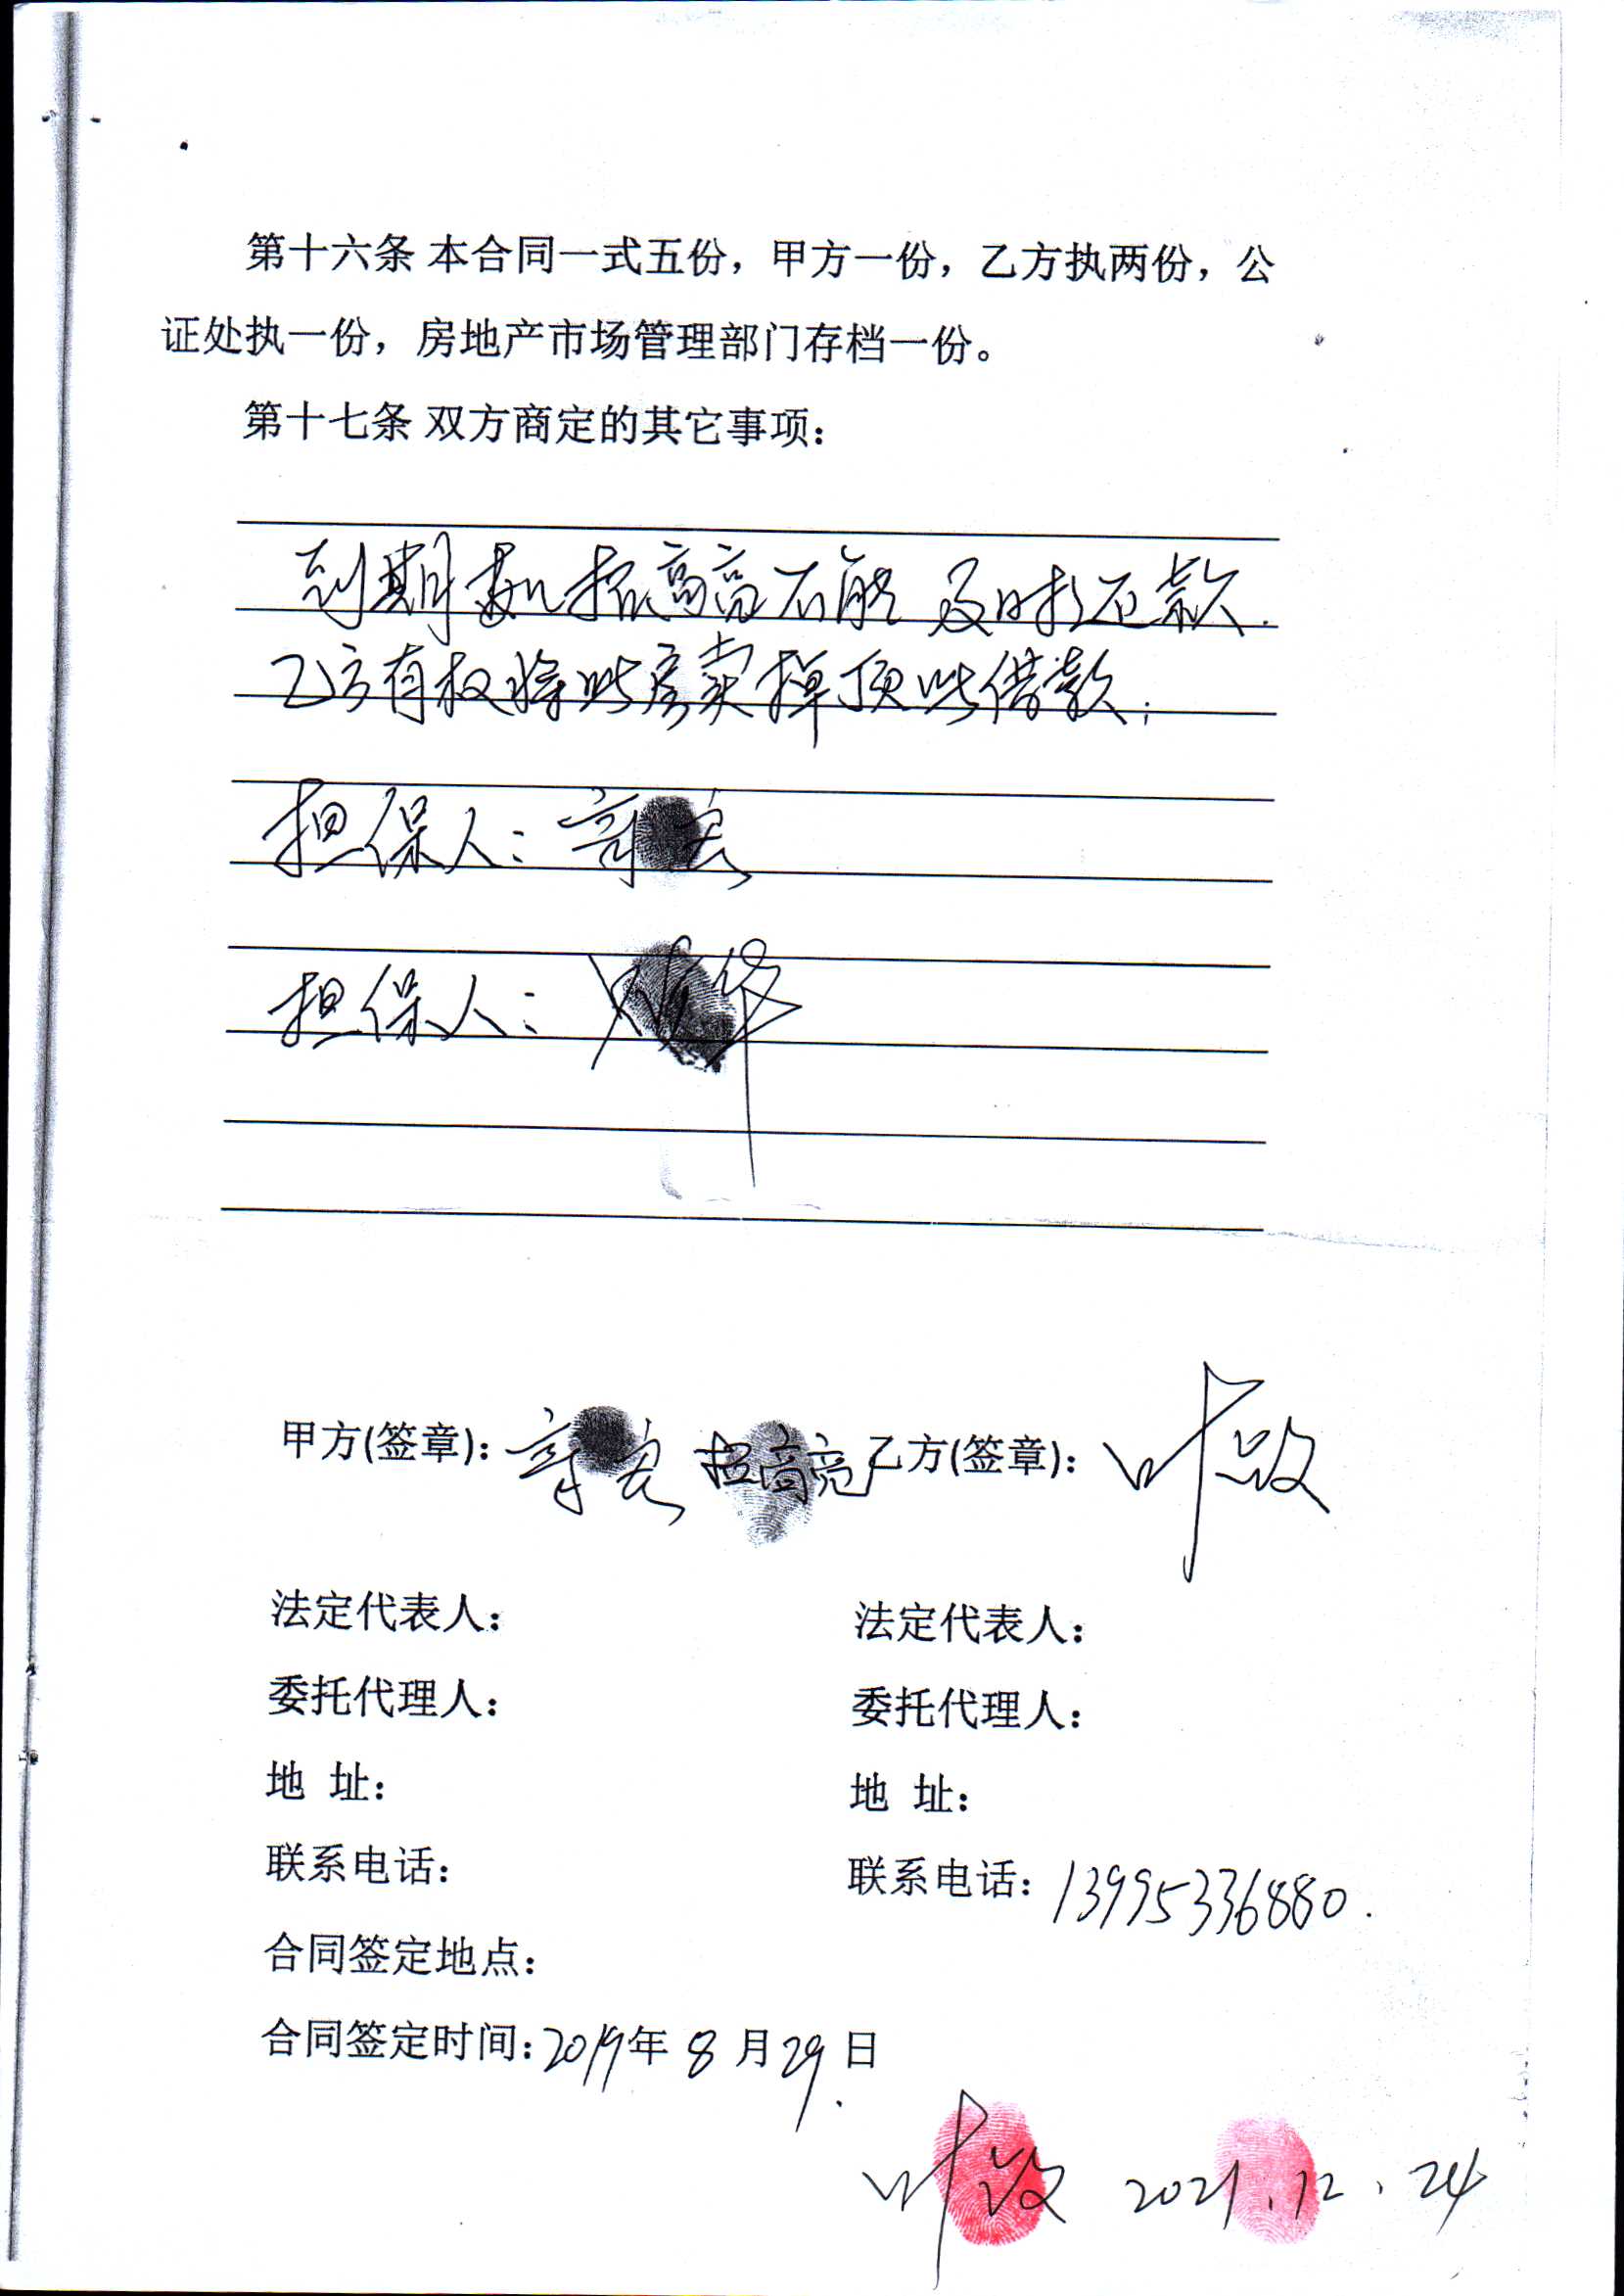 第十六条 本合同一式五份，甲方一份，乙方执两份，公
证处执一份，房地产市场管理部门存档一份。
第十七条 双方商定的其它事项：
到期 招高亮不能及时还款.
乙方有权将此房卖掉顶此借款;
担保人：
担保人：
甲方(签章)： 招高亮 乙方(签章)： 叶政
法定代表人： 法定代表人：
委托代理人： 委托代理人：
地 址： 地 址：
联系电话： 联系电话：13995336880.
合同签定地点：
合同签定时间：2019年8月29日
叶政 2021.12.24